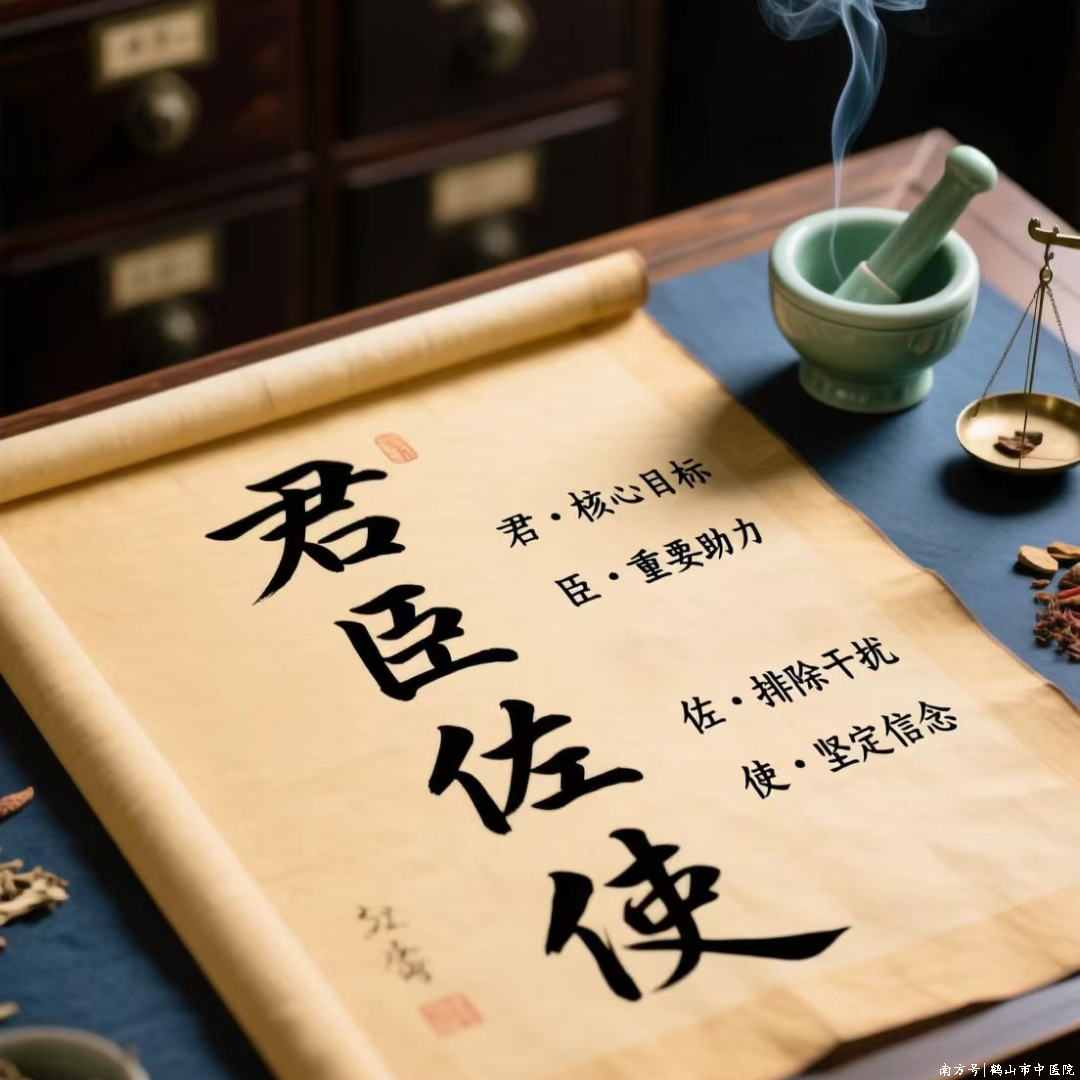 君
臣
佐
使
君·核心目标
臣·重要助力
佐·排除干扰
使·坚定信念
南方号|鹤山市中医院